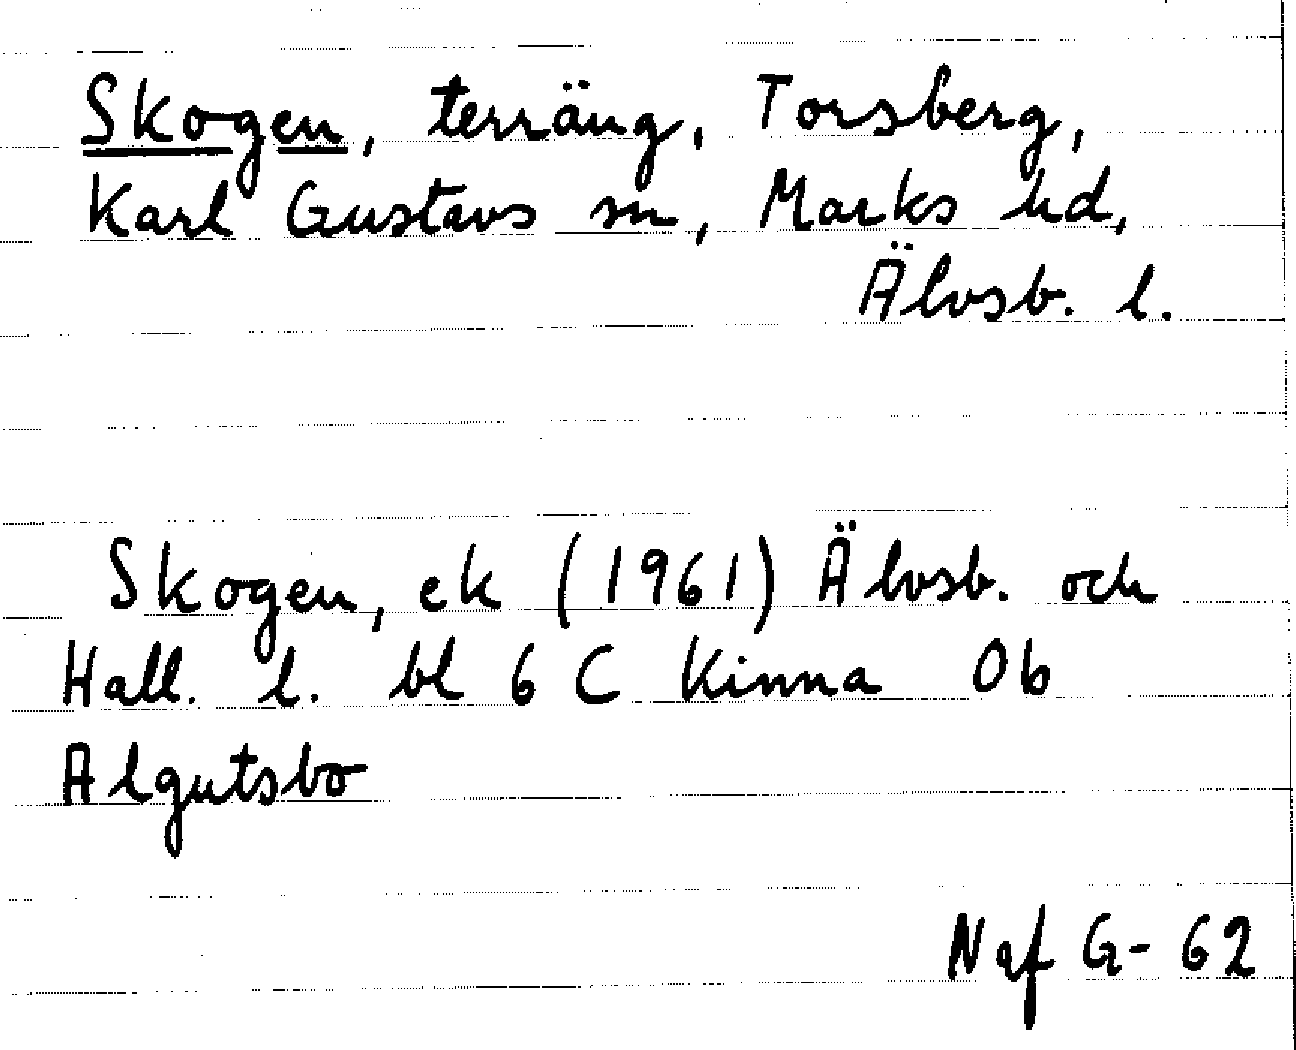 Skogen, terräng, Torsberg,
Karl Gustavs sn, Marks hd,
Älvsb. l.
Skogen, ek (1961) Älvsb. och
Hall. l. bl 6 C Kinna 0b
Algutsbo
Naf G-62